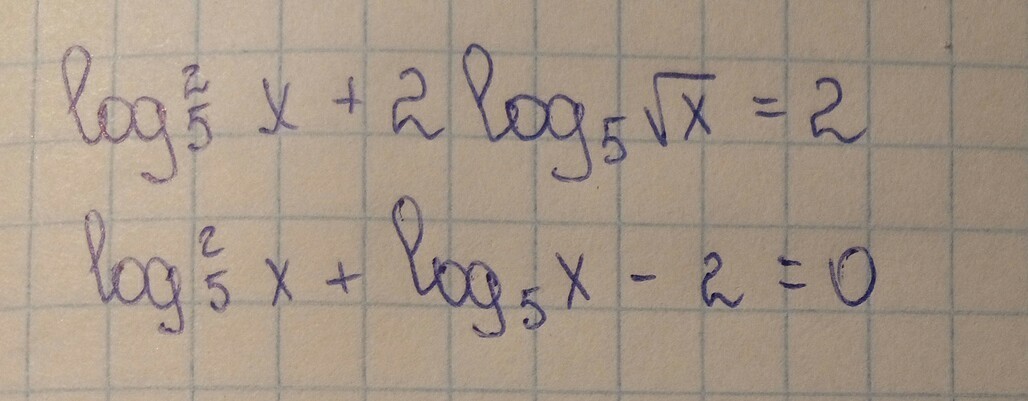 log₅² x + 2 log₅ √x = 2
log₅² x + log₅ x - 2 = 0